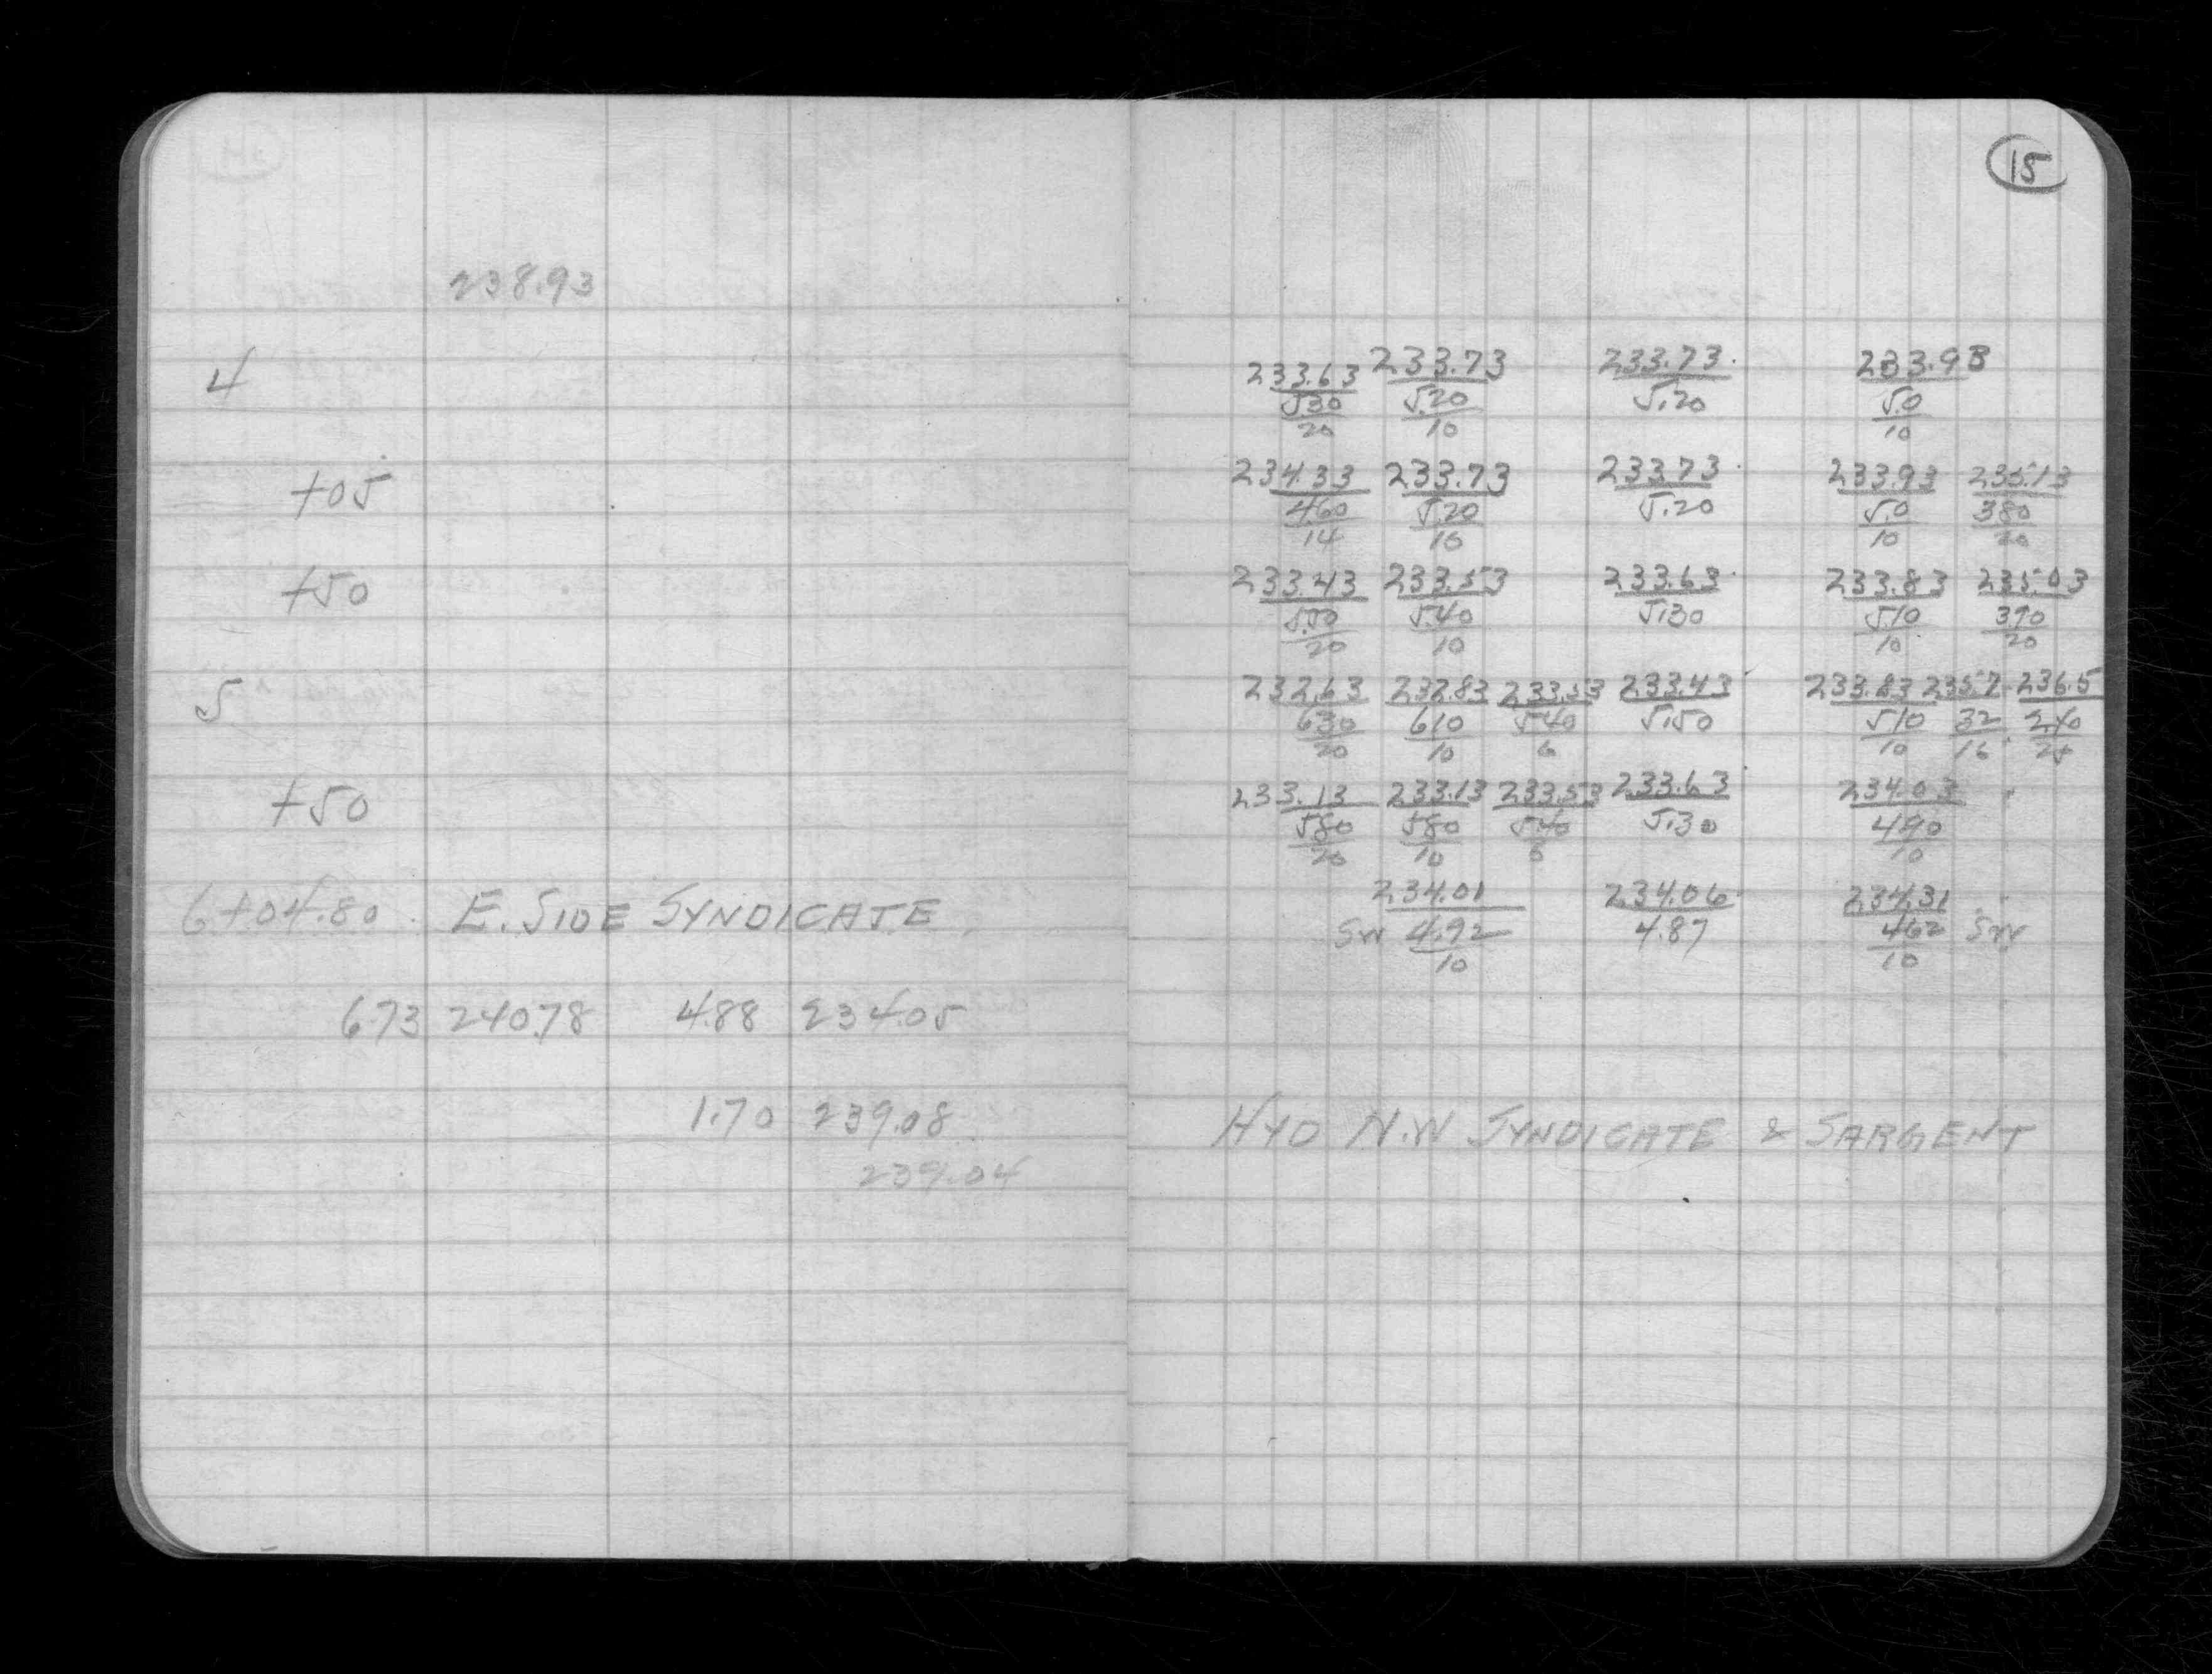 15
238.93
4 233.63 233.73 233.73 233.98
5.30 5.20 5.20 5.0
20 10 10
+05 234.33 233.73 233.73 233.93 235.13
4.60 5.20 5.20 5.0 380
14 10 10 20
+50 233.43 233.53 233.63 233.83 235.03
5.50 5.40 5.30 510 390
20 10 10 20
5 232.63 232.83 233.53 233.43 233.83 235.7 236.5
630 610 540 5.50 510 32 240
20 10 6 10 16
+50 233.13 233.13 233.53 233.63 234.03
580 580 540 5.30 490
20 10 10
6+04.80 E. SIDE SYNDICATE 234.01 234.06 234.31
SW 4.92 4.87 462 SW
10 10
673 240.78 4.88 234.05
1.70 239.08 HYD N.W SYNDICATE & SARGENT
239.04